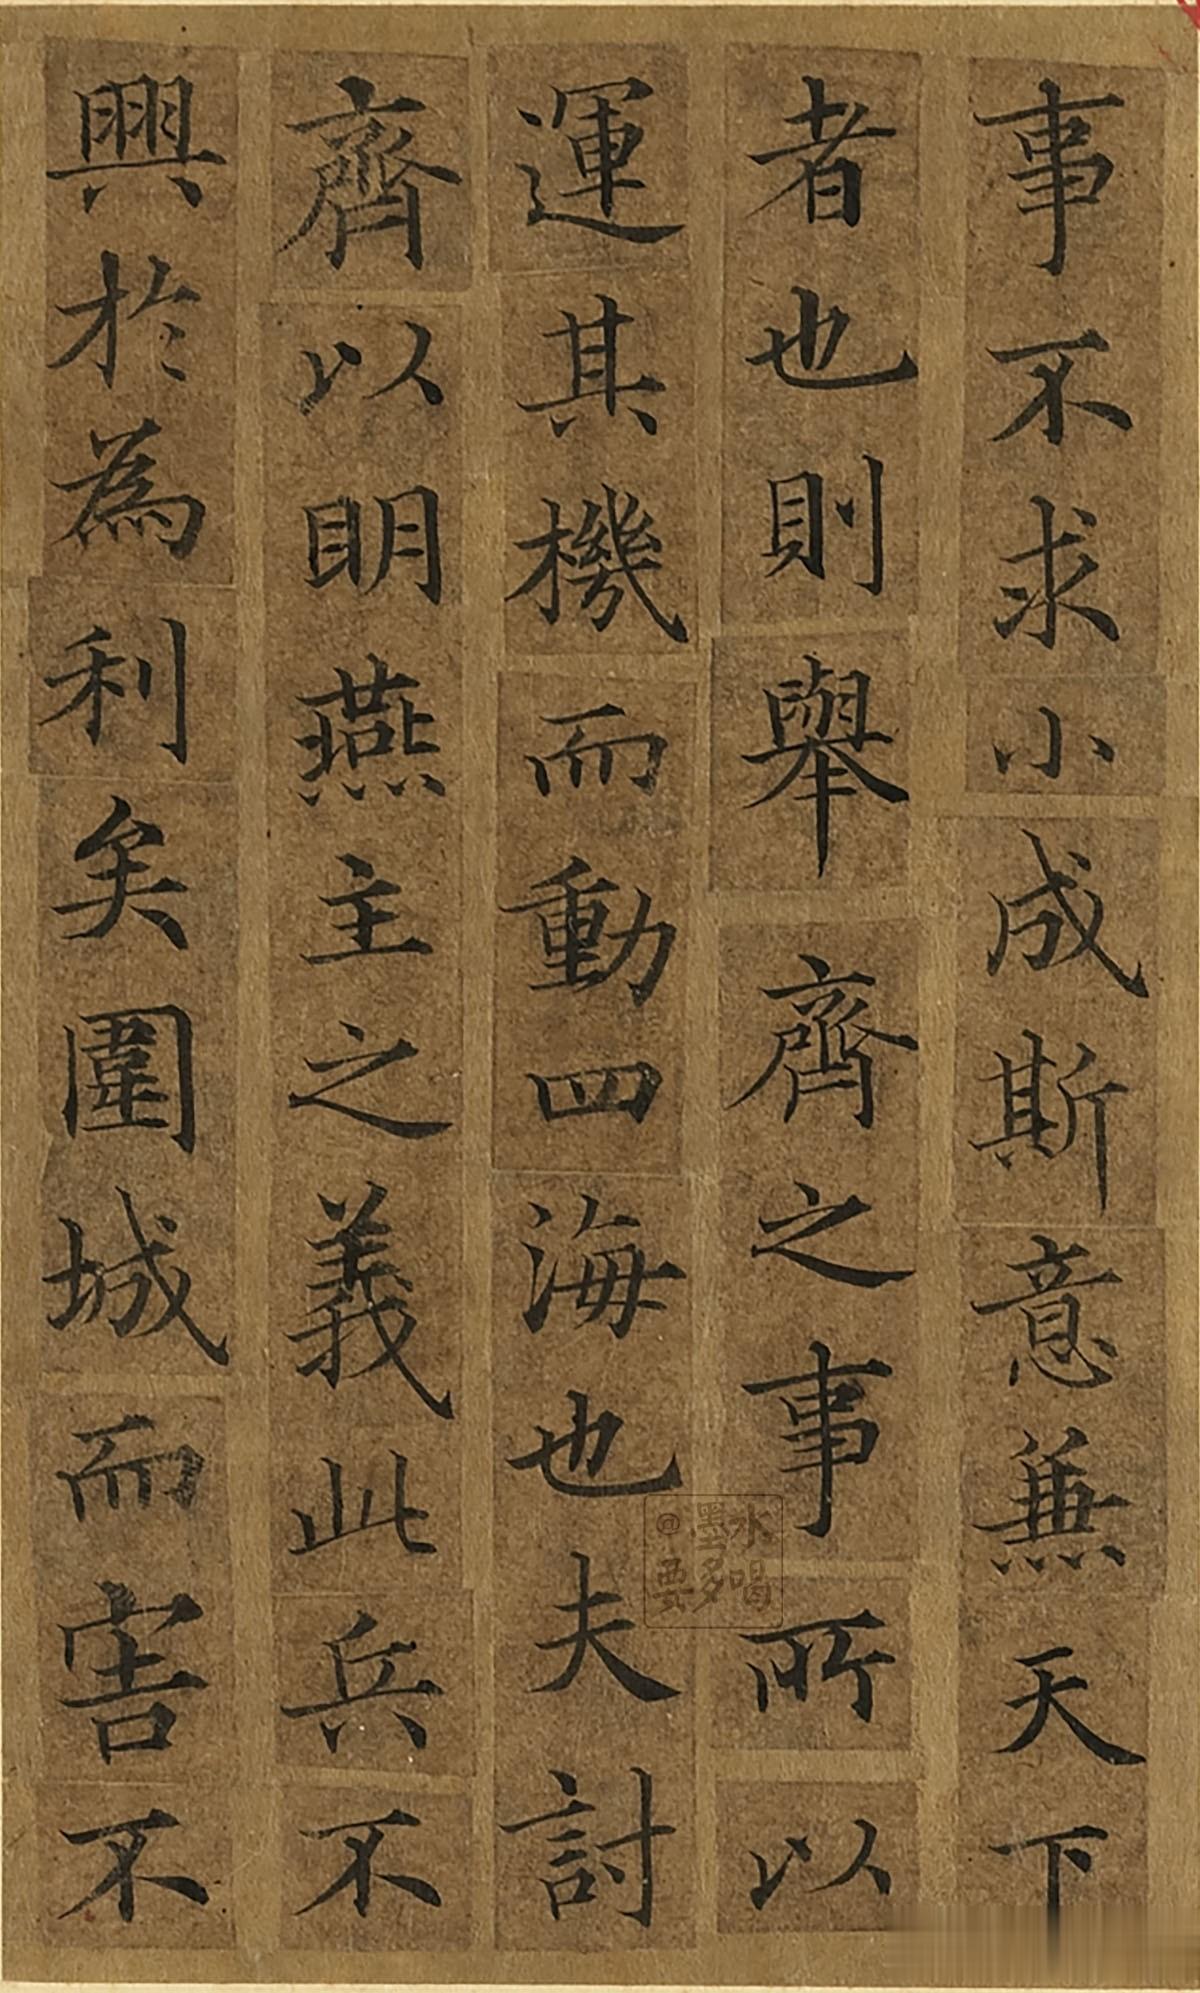 事不求小成斯意兼天下
者也則舉齊之事所以
運其機而動四海也夫討
齊以明燕主之義此兵不
興於為利矣圍城而害不
@墨水
要多喝